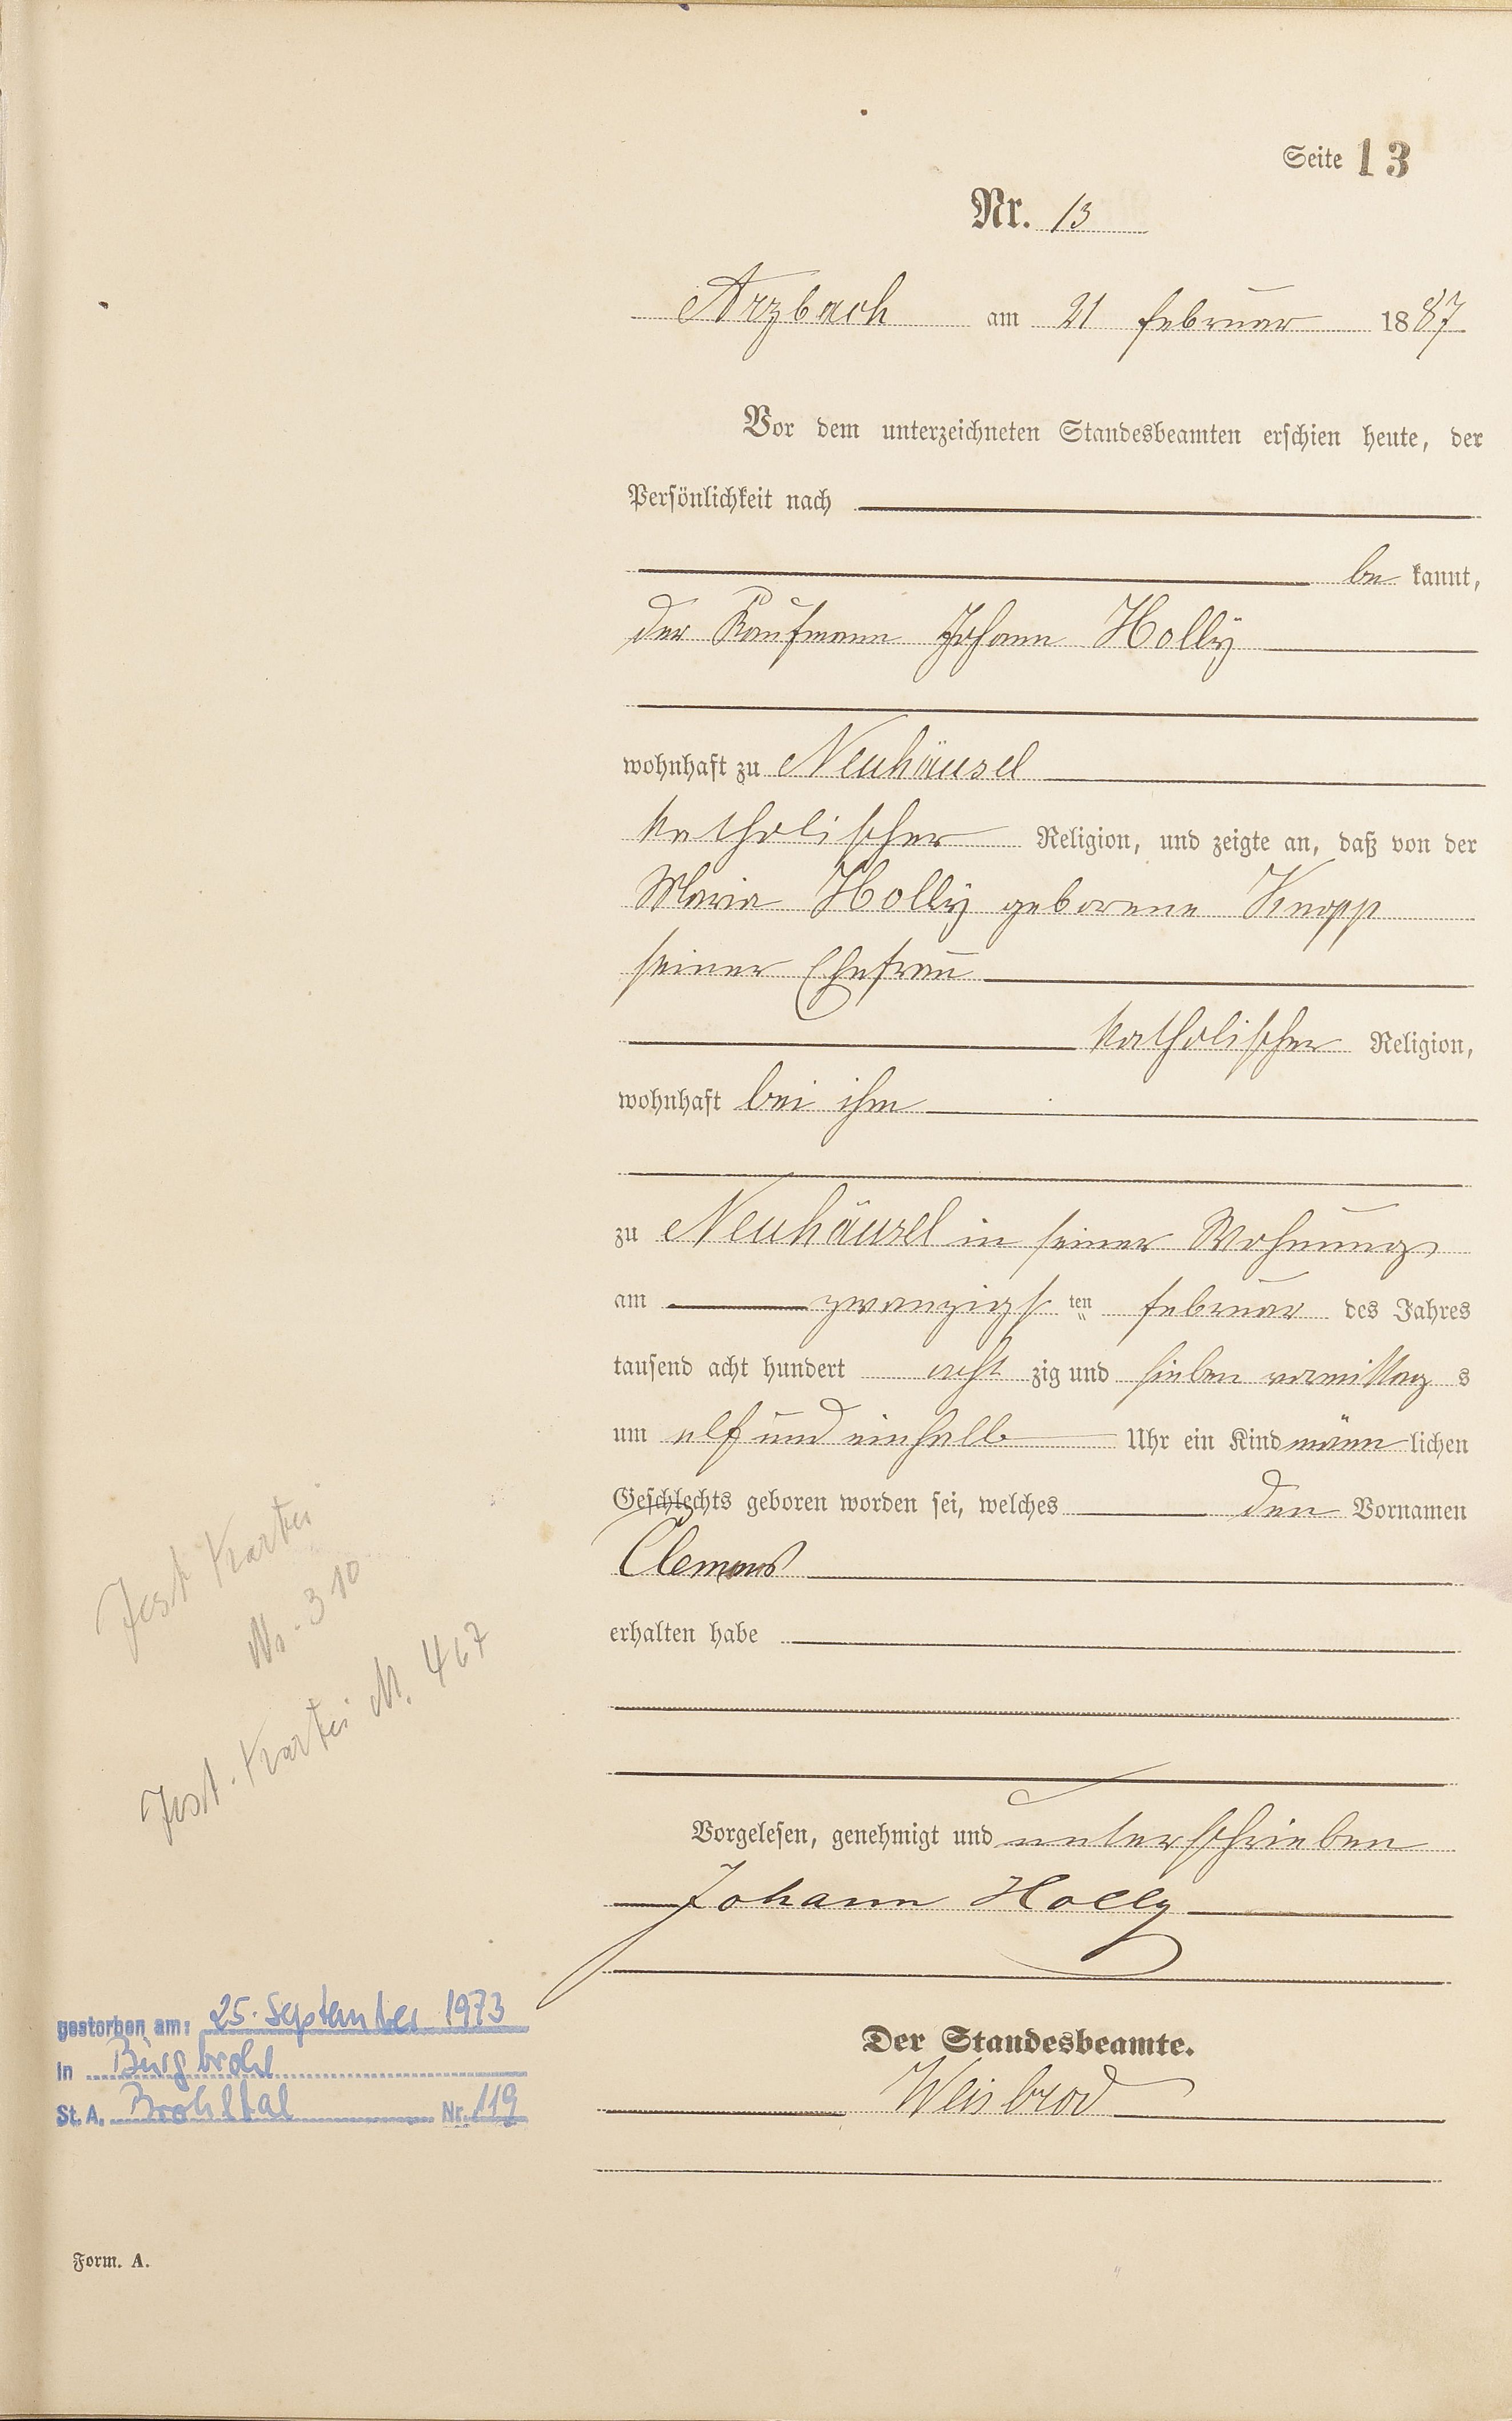 Seite 13
Nr. 13
Arzbach am 21 Februar 1887
Vor dem unterzeichneten Standesbeamten erschien heute, der
Persönlichkeit nach
be kannt,
der Kaufmann Johann Holly
wohnhaft zu Neuhäusel
katholischer Religion, und zeigte an, daß von der
Maria Holly geborene Knopp
seiner Ehefrau
katholischer Religion,
wohnhaft bei ihm
zu Neuhäusel in seiner Wohnung
am zwanzigs ten Februar des Jahres
tausend acht hundert acht zig und sieben vormittag s
um elf und einhalb Uhr ein Kind männ lichen
Geschlechts geboren worden sei, welches den Vornamen
Clemens
erhalten habe
Vorgelesen, genehmigt und unterschrieben
Johann Holly
Der Standesbeamte.
Weisbrod
Test Kartei
Nr. 310
Test. Kartei N. 467
gestorben am: 25. September 1973
in Burgbrohl
St. A. Brohltal Nr. 119
Form. A.